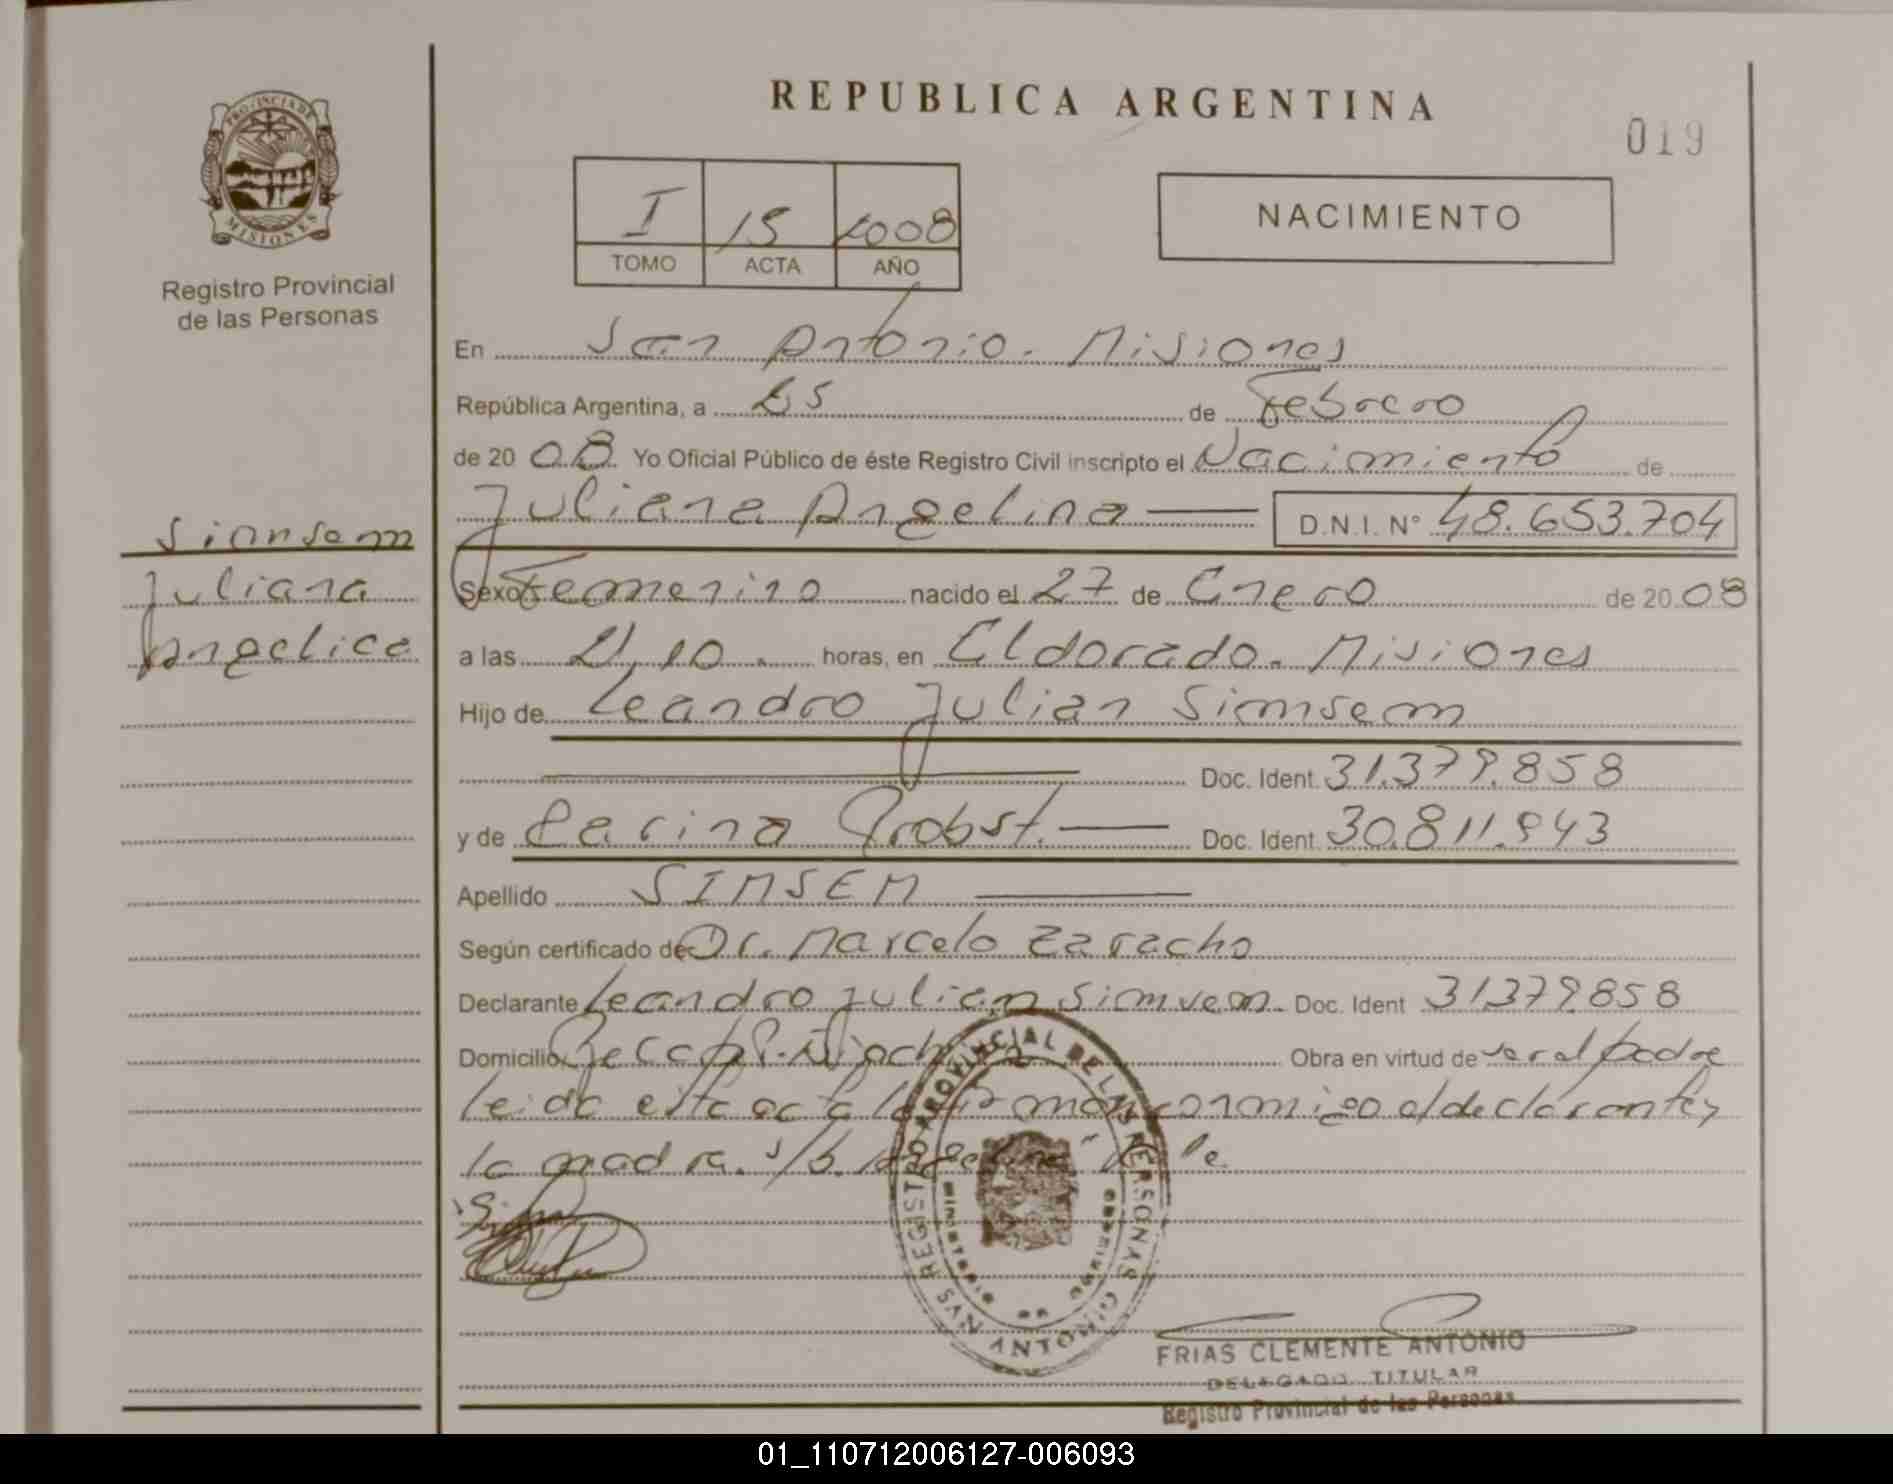 REPUBLICA ARGENTINA
019
PROVINCIA DE
MISIONES
Registro Provincial
de las Personas
I 15 2008
TOMO ACTA AÑO
NACIMIENTO
En San Antonio. Misiones
República Argentina, a 25 de Febrero
de 2008 Yo Oficial Público de éste Registro Civil inscripto el Nacimiento de
Juliana Angelina D.N.I. N° 48.653.704
Simsem
Juliana
Angelica
Sexo Femenino nacido el 27 de Enero de 2008
a las 21,10. horas, en Eldorado. Misiones
Hijo de Leandro Julian Simsem
Doc. Ident. 31.379.858
y de Carina Probst. Doc. Ident. 30.811.943
Apellido SIMSEM
Según certificado de Dr. Marcelo Zaracho
Declarante Leandro Julian Simsem. Doc. Ident 31379.858
Domicilio Obra en virtud de ser el padre
leida esta acta la firman conmigo el declarante y
la madre. s/b.
REGISTRO PROVINCIAL DE LAS PERSONAS
MINISTERIO DE GOBIERNO
SAN ANTONIO
FRIAS CLEMENTE ANTONIO
DELEGADO TITULAR
Registro Provincial de las Personas
01_110712006127-006093